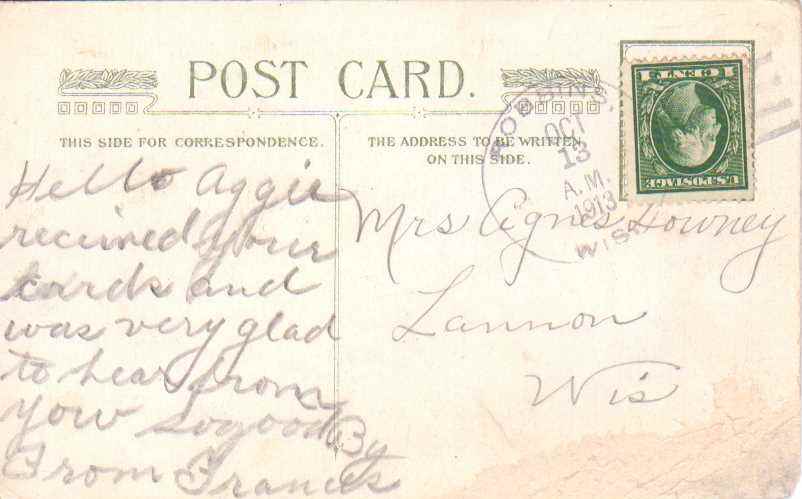 POST CARD.
THIS SIDE FOR CORRESPONDENCE.
THE ADDRESS TO BE WRITTEN
ON THIS SIDE.
Hello Aggie
received your
cards and
was very glad
to hear from
you so good By
From Frances
Mrs Agnes Downey
Lannon
Wis
OCT
13
A.M.
1913
WIS
U.S. POSTAGE
1 CENT 1